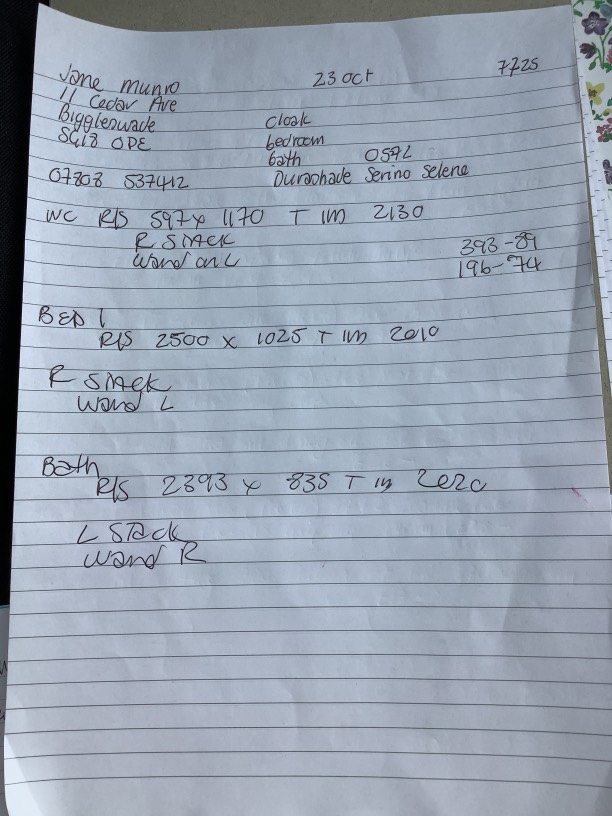 Jane Munro 23 Oct 7725
11 Cedar Ave
Biggleswade Cloak
SG18 0PE bedroom
bath 0592
07808 537412 Durashade Serino Selene
WC R/S 597 x 1170 T IM 2130
R STACK 393-89
Wand on L 196-74
BED 1
R/S 2500 x 1025 T IM 2010
R STACK
Wand L
Bath
R/S 2393 x 835 T IM 2020
L STACK
Wand R